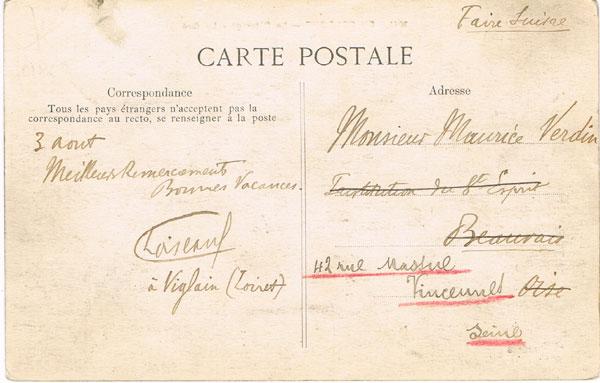 Faire Suivre
CARTE POSTALE
Correspondance
Tous les pays étrangers n'acceptent pas la
correspondance au recto, se renseigner à la poste
3 Aout
Meilleurs Remerciements
Bonnes Vacances.
Loiseau
à Viglain (Loiret)
Adresse
Monsieur Maurice Verdin
Institution du St Esprit
Beauvais
42 rue
Vincennes Oise
Seine